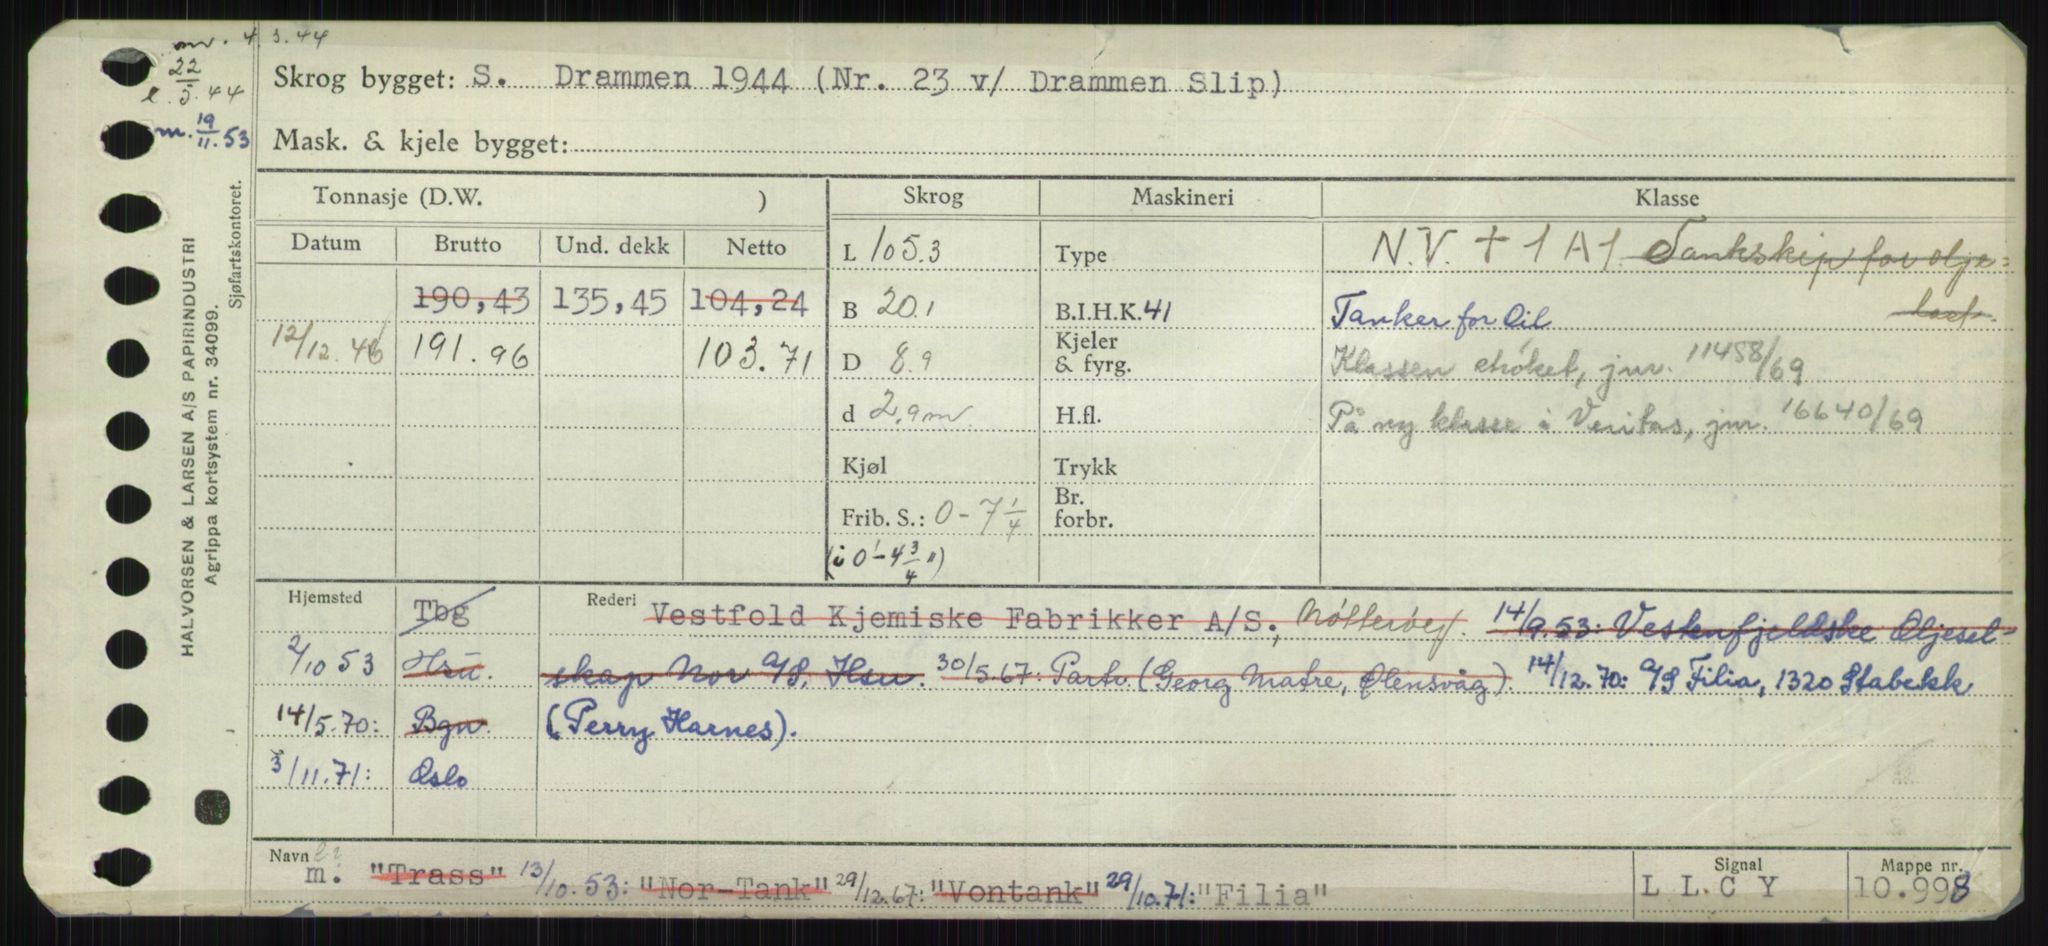 mv. 4.3.44
22
e. 5.44
m. 19/11.53
Skrog bygget: S. Drammen 1944 (Nr. 23 v/ Drammen Slip)
Mask. & kjele bygget:
Tonnasje (D.W. )
Skrog Maskineri Klasse
Datum Brutto Und. dekk Netto
L 105.3 Type N.V. + 1 A 1. Tankskip for olje=
190,43 135,45 104,24 B 20.1 B.I.H.K. 41 Tanker for Oil last.
12/12.46 191.96 103.71 D 8.9 Kjeler & fyrg. Klassen strøket, jnr. 11458/69
d 2,9m H.fl. På ny klasse i Veritas, jnr. 16640/69
Kjøl Trykk
Frib. S.: 0 - 7 1/4 Br. forbr.
(i 0'-4 3/4")
Hjemsted Tbg Rederi Vestfold Kjemiske Fabrikker A/S., Nötteröy. 14/9.53: Vestenfjeldske Oljesel-
2/10 53 Hsu. skap Nor A/S, Hsu. 30/5.67: Partr. (Georg Matre, Ølensvåg) 14/12.70: A/S Filia, 1320 Stabekk
14/5.70: Bgn. (Perry Harnes).
3/11.71: Oslo
Navn m. "Trass" 13/10.53: "Nor-Tank" 29/12.67: "Vontank" 29/10.71: "Filia"
Signal L L C Y
Mappe nr. 10.998
HALVORSEN & LARSEN A/S PAPIRINDUSTRI
Agrippa kortsystem nr. 34099.
Sjøfartskontoret.